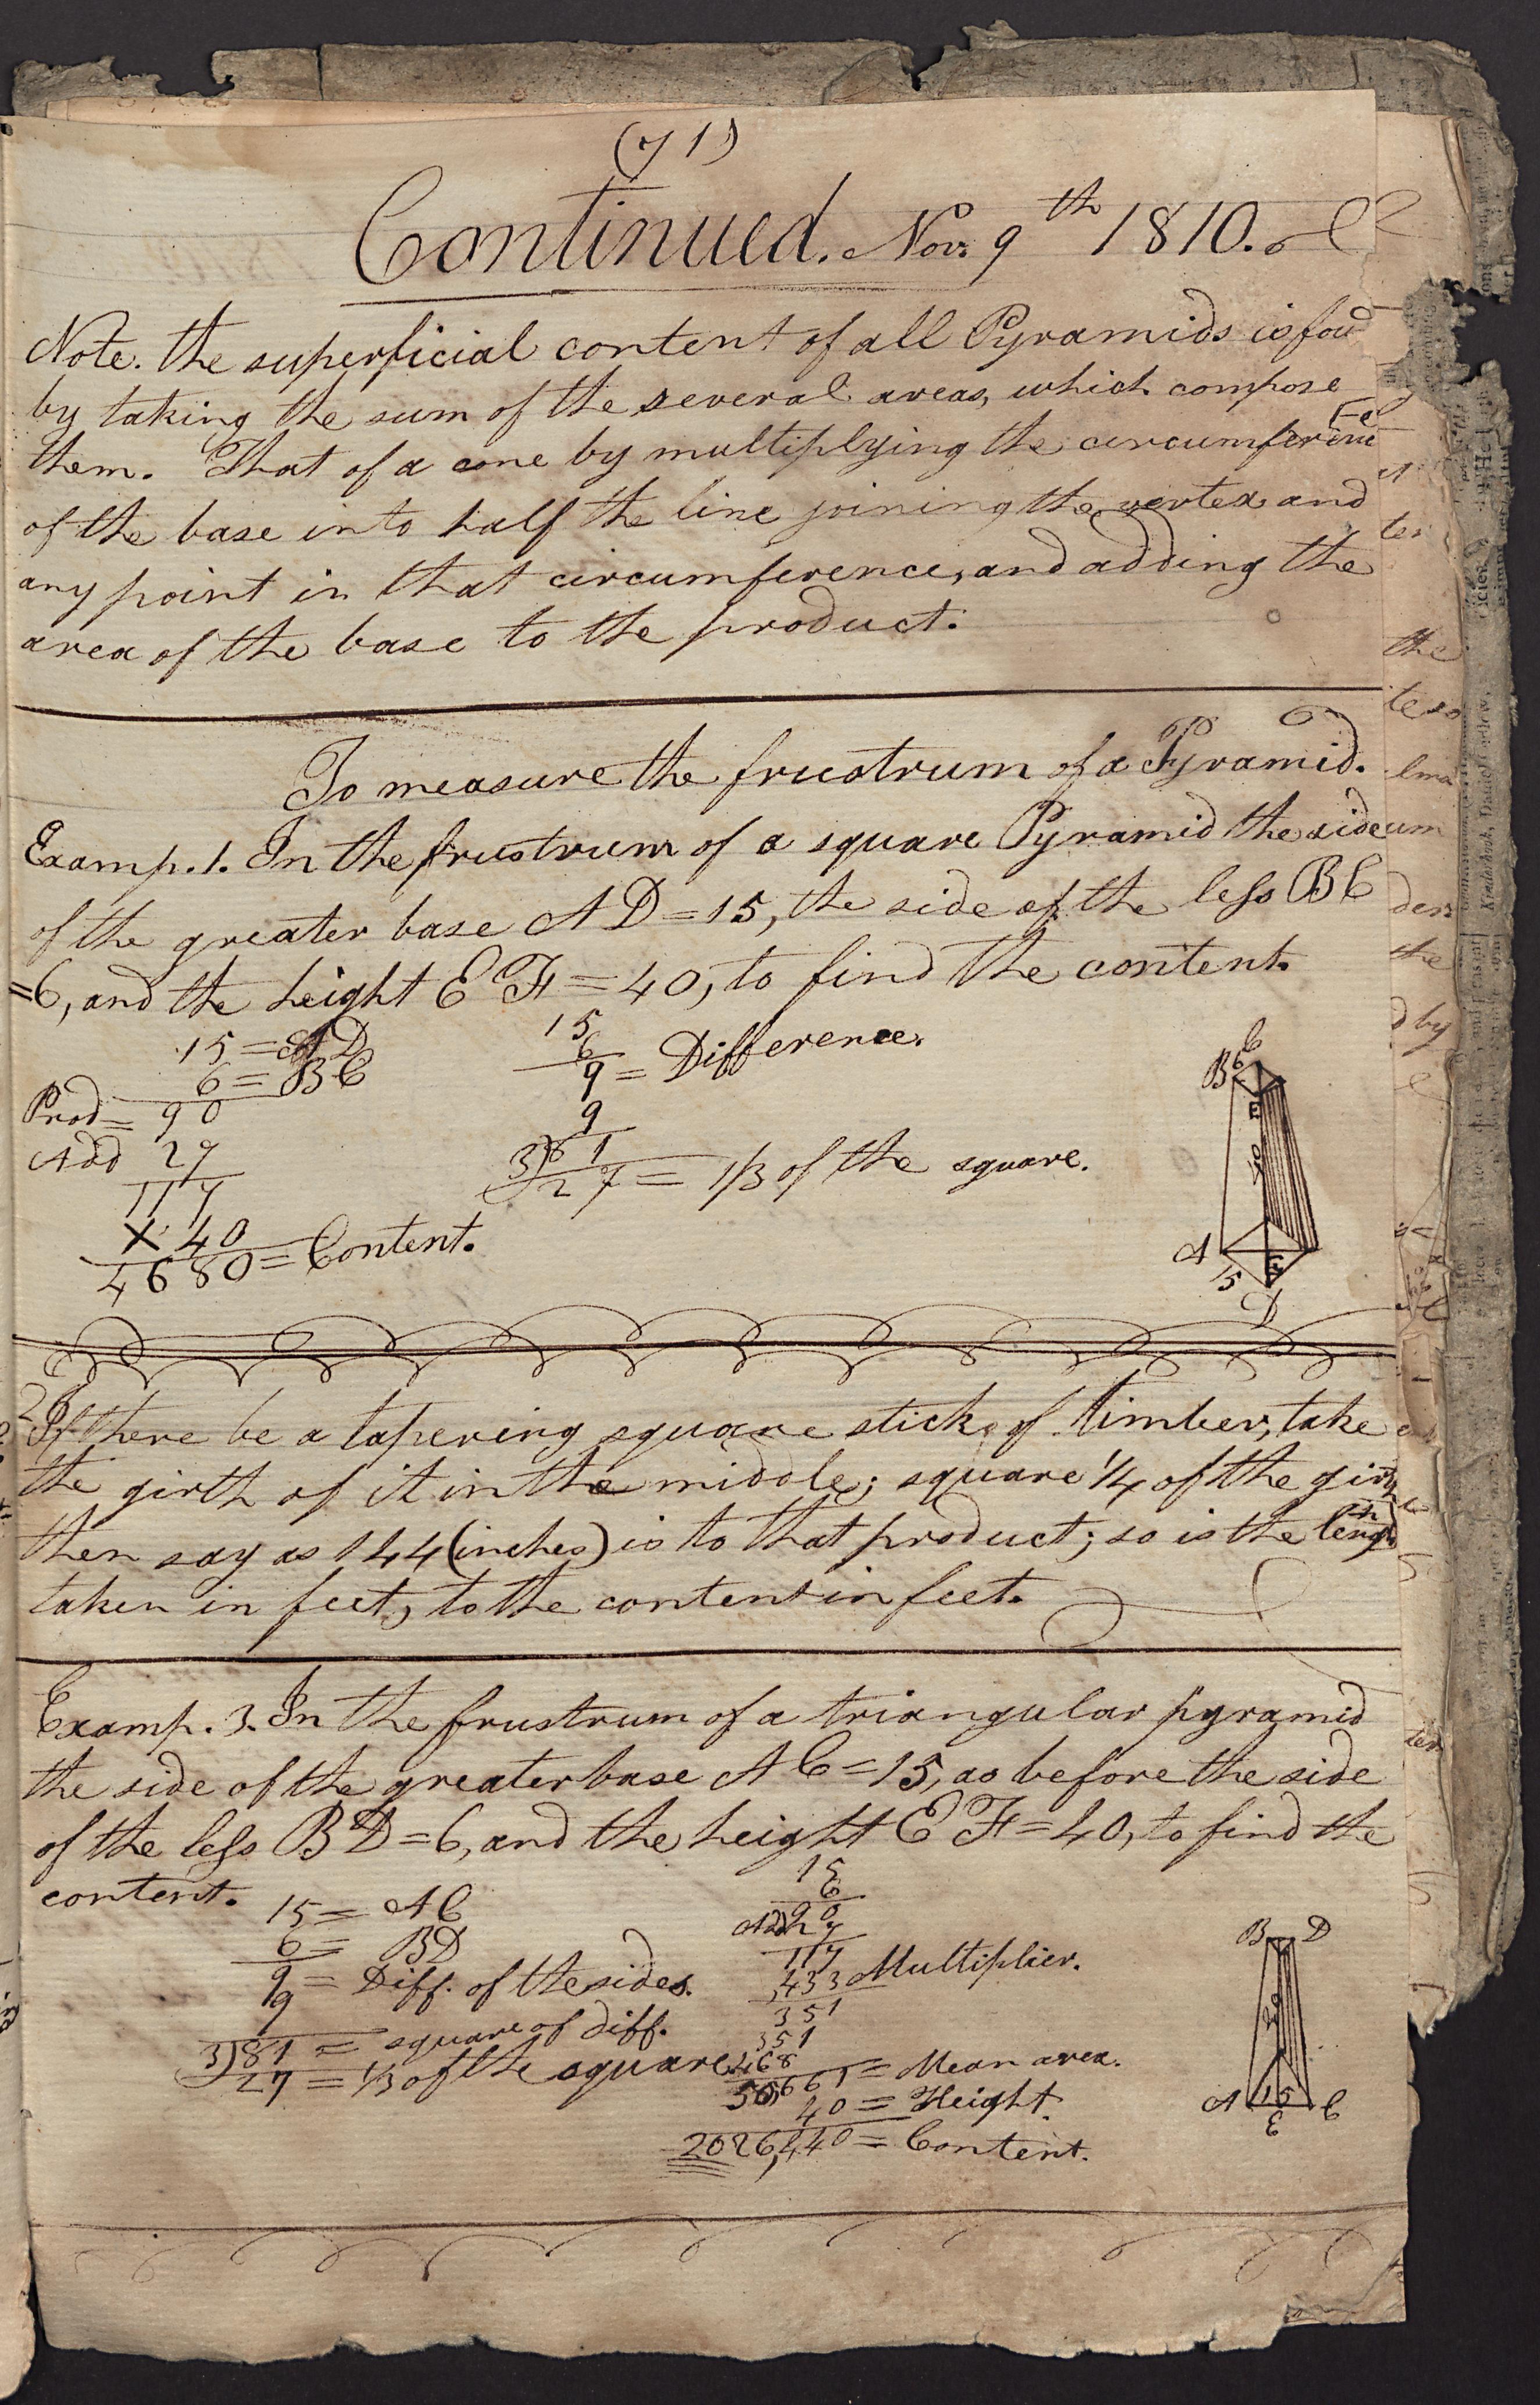 (71)
Continued. Nov. 9th 1810.
Note. the superficial content of all Pyramids is foud
by taking the sum of the several areas, which compose
them. That of a cone by multiplying the circumference
of the base into half the line joining the vertex and
any point in that circumference, and adding the
area of the base to the product.
To measure the frustrum of a Pyramid.
Examp. 1. In the frustrum of a square Pyramid the side
of the greater base AD=15, the side of the less BC
=6, and the height EF=40, to find the content.
15=AD
6=BC
Prod= 90
Add 27
117
X 40
4680=Content.
15
6
9= Difference.
9
3)81
27= 1/3 of the square.
B C
6
E
40
A F
15
D
2 If there be a tapering square stick of timber, take
the girth of it in the middle; square 1/4 of the girth
then say as 144 (inches) is to that product; so is the length
taken in feet, to the content in feet.
Examp. 3. In the frustrum of a triangular pyramid
the side of the greater base AC=15, as before the side
of the less BD=6, and the height EF=40, to find the
content.
15= AC
6= BD
9= Diff. of the sides.
9
3)81 = square of diff.
27 = 1/3 of the square
15
6
90
Add 27
117
,433 Multiplier.
351
351
468
50,661= Mean area.
40= Height.
2026,440= Content.
B D
A 15 C
E